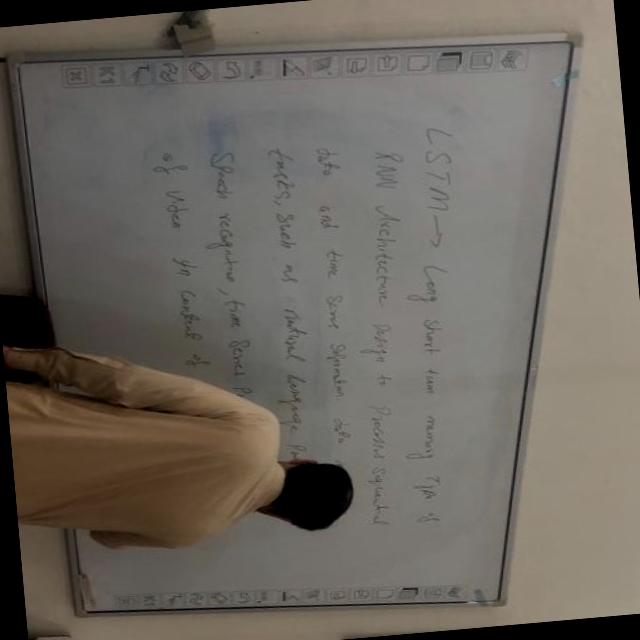 LSTM → Long short term memory Type of
RNN Architecture Design to Processed sequential
data and time Serse data
tasks, such as natural language
Speech recognition, time Serse
of Video in Context of